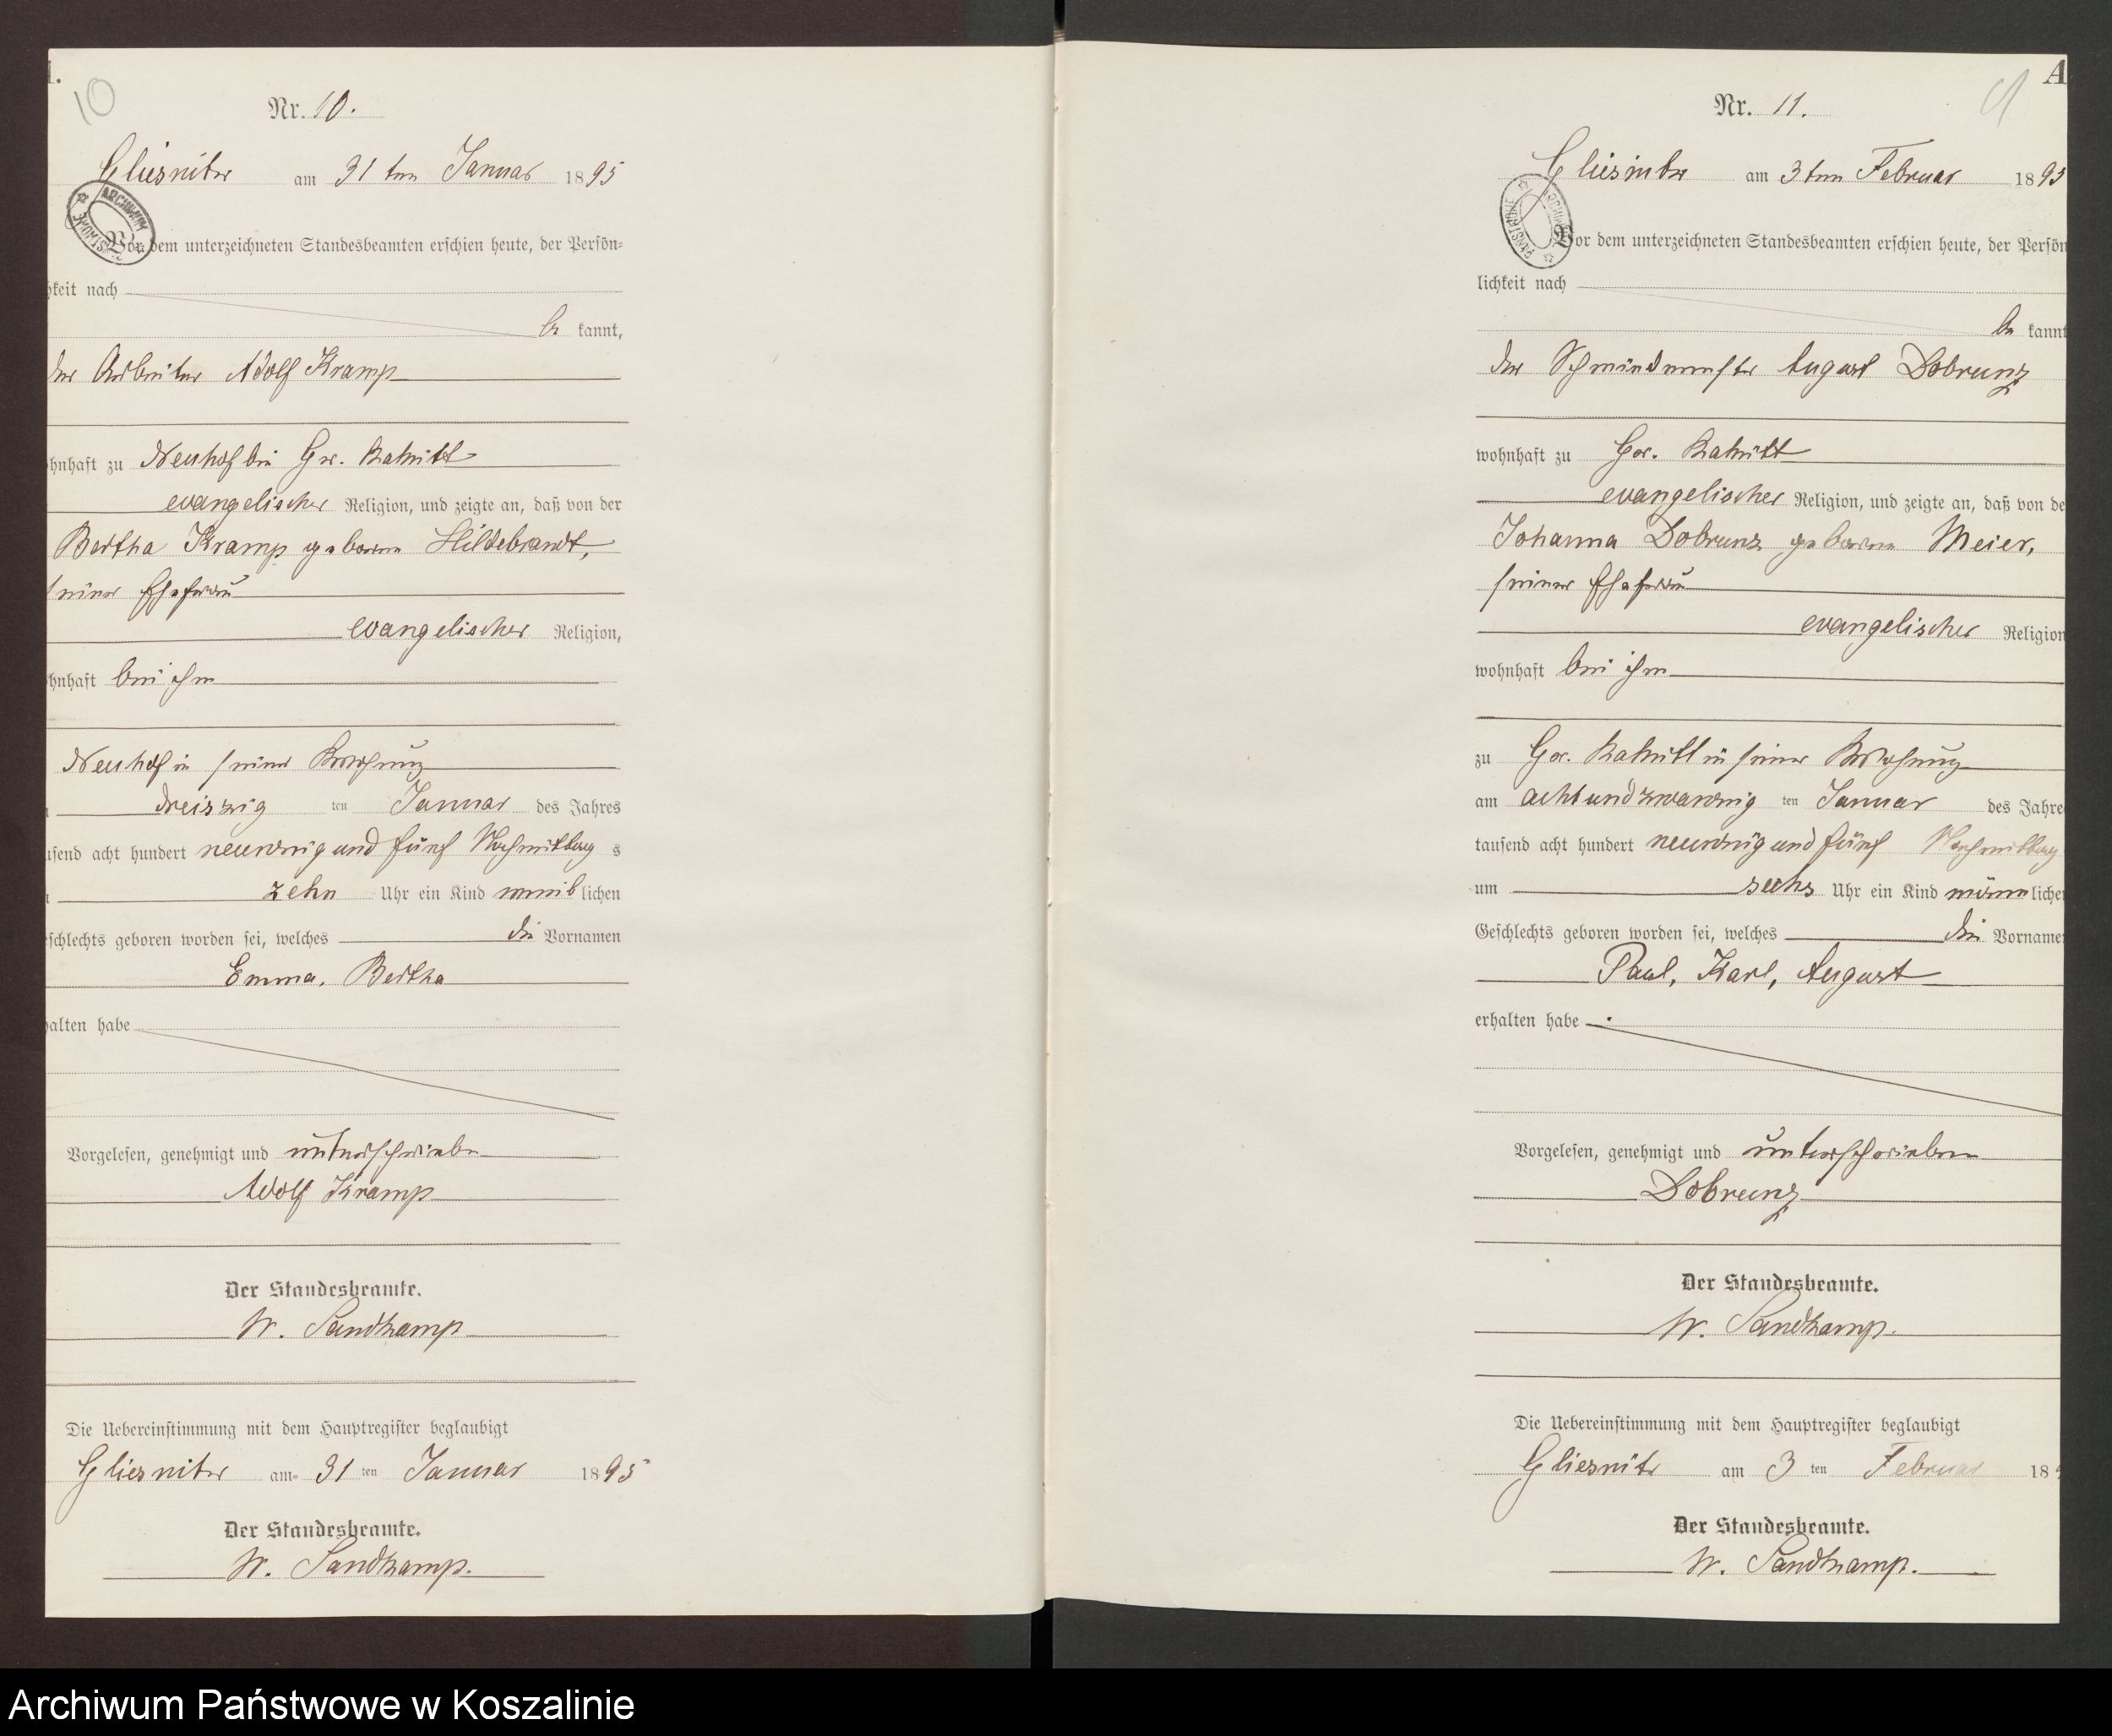 10
Nr. 10.
Gliesnitz am 31ten Januar 1895
ARCHIWUM
Vor dem unterzeichneten Standesbeamten erschien heute, der Persön=
keit nach
be kannt,
der Arbeiter Adolf Kramp
hnhaft zu Neuhof bei Gr.
evangelischer Religion, und zeigte an, daß von der
Bertha Kramp geborene Hildebrandt,
seiner Ehefrau
evangelischer Religion,
hnhaft bei ihm
Neuhof in seiner Behausung
dreiszig ten Januar des Jahres
usend acht hundert neunzig und fünf Nachmittag s
zehn Uhr ein Kind weib lichen
schlechts geboren worden sei, welches die Vornamen
Emma, Bertha
halten habe
Vorgelesen, genehmigt und unterschrieben
Adolf Kramp
Der Standesbeamte.
W. Sandkamp
Die Uebereinstimmung mit dem Hauptregister beglaubigt
Gliesnitz am 31 ten Januar 1895
Der Standesbeamte.
W. Sandkamp.
A
Nr. 11.
Gliesnitz am 3ten Februar 1895
PAŃSTWOWE
Vor dem unterzeichneten Standesbeamten erschien heute, der Persön
lichkeit nach
be kannt
der Schmiedemeister August Dobrunz
wohnhaft zu Gr.
evangelischer Religion, und zeigte an, daß von de
Johanna Dobrunz geborene Meier,
seiner Ehefrau
evangelischer Religion
wohnhaft bei ihm
zu Gr. in seiner Behausung
am achtundzwanzig ten Januar des Jahre
tausend acht hundert neunzig und fünf Nachmittag
um sechs Uhr ein Kind männ liche
Geschlechts geboren worden sei, welches die Vorname
Paul, Karl, August
erhalten habe
Vorgelesen, genehmigt und unterschrieben
Dobrunz
Der Standesbeamte.
W. Sandkamp.
Die Uebereinstimmung mit dem Hauptregister beglaubigt
Gliesnitz am 3 ten Februar 18
Der Standesbeamte.
W. Sandkamp.
Archiwum Państwowe w Koszalinie